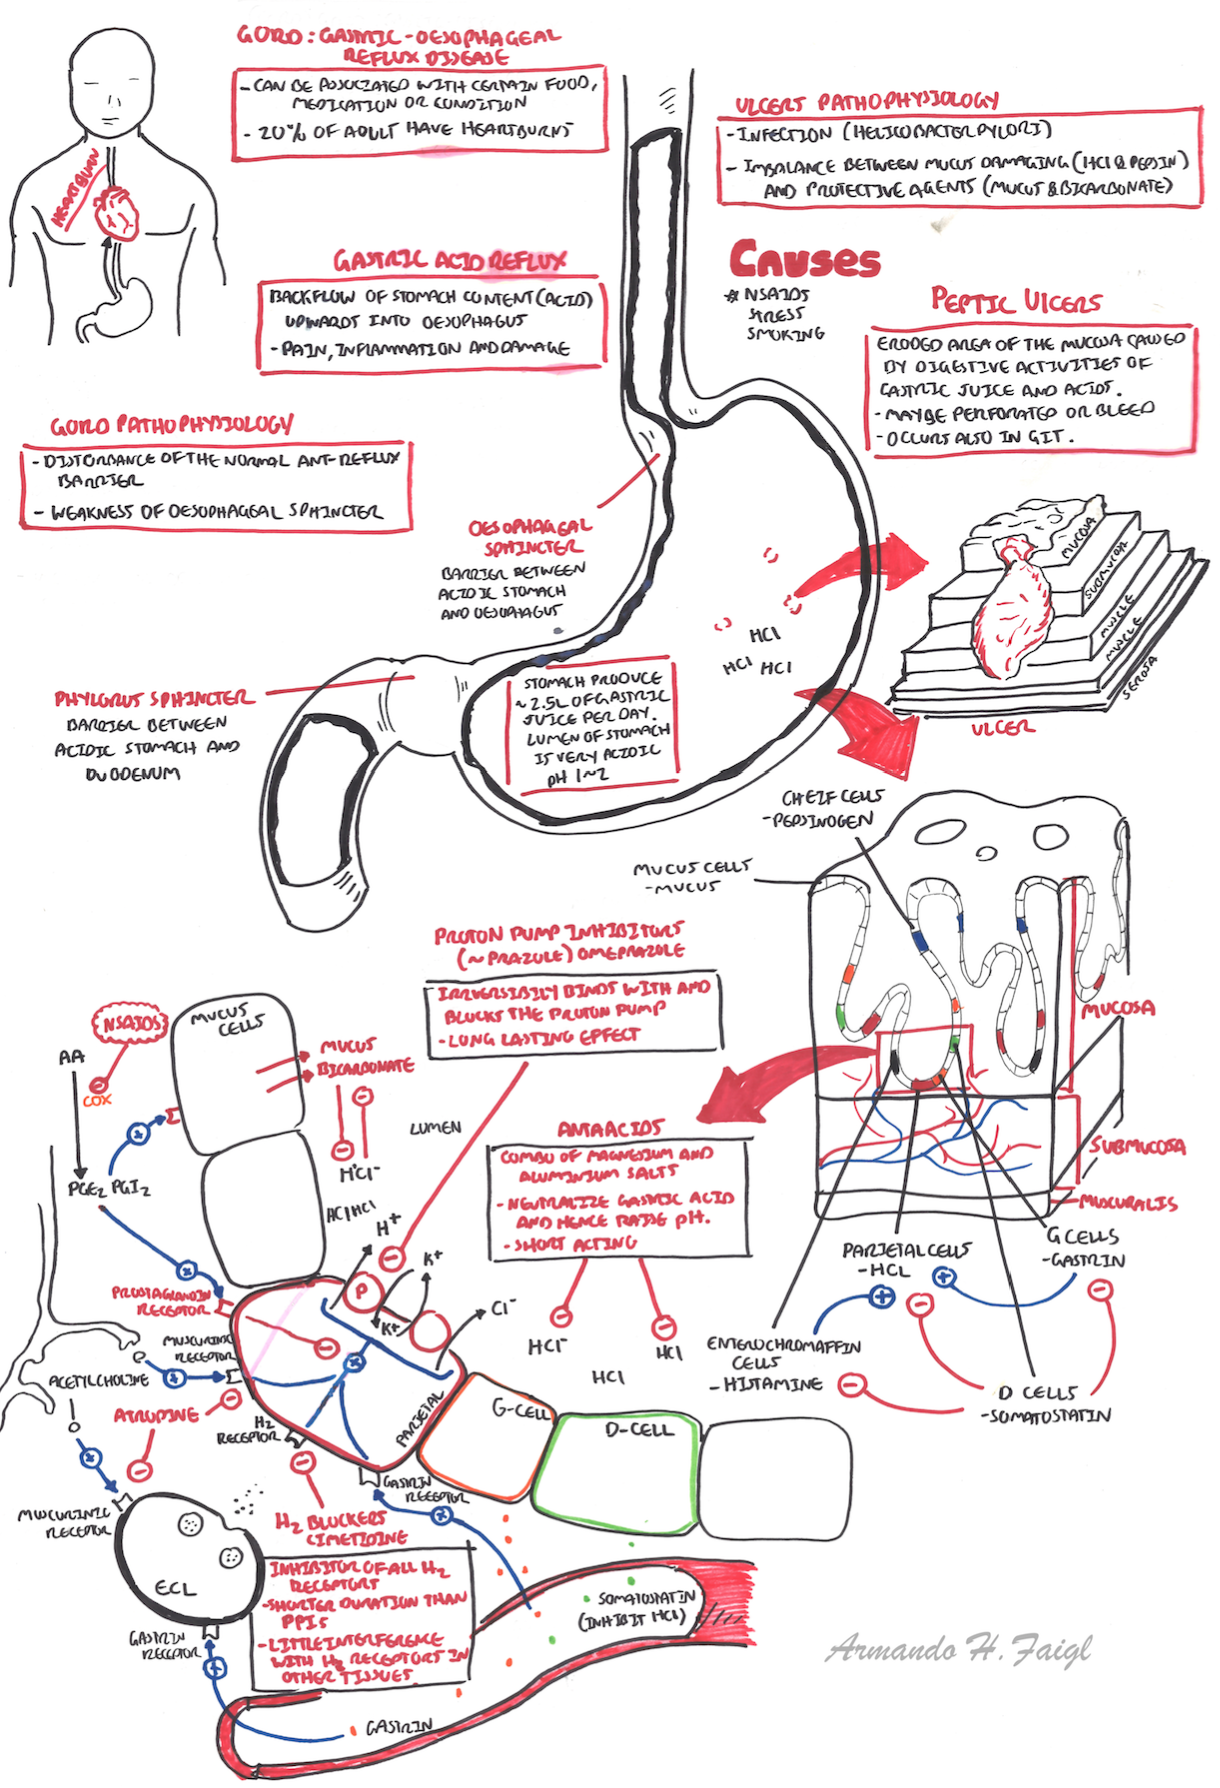 GORD: GASTRIC-OESOPHAGEAL
REFLUX DISEASE
- CAN BE ASSOCIATED WITH CERTAIN FOOD,
MEDICATION OR CONDITION
- 20% OF ADULT HAVE HEARTBURNS
HEARTBURN
ULCERS PATHOPHYSIOLOGY
- INFECTION (HELICOBACTER PYLORI)
- IMBALANCE BETWEEN MUCUS DAMAGING (HCl & PEPSIN)
AND PROTECTIVE AGENTS (MUCUS & BICARBONATE)
GASTRIC ACID REFLUX
BACKFLOW OF STOMACH CONTENT (ACID)
UPWARDS INTO OESOPHAGUS
- PAIN, INFLAMMATION AND DAMAGE
CAUSES
* NSAIDS
STRESS
SMOKING
PEPTIC ULCERS
ERODED AREA OF THE MUCOSA CAUSED
BY DIGESTIVE ACTIVITIES OF
GASTRIC JUICE AND ACIDS.
- MAYBE PERFORATED OR BLEED
- OCCURS ALSO IN GIT.
GORD PATHOPHYSIOLOGY
- DISTORBANCE OF THE NORMAL ANT-REFLUX
BARRIER
- WEAKNESS OF OESOPHAGEAL SPHINCTER
OESOPHAGEAL
SPHINCTER
BARRIER BETWEEN
ACIDIC STOMACH
AND OESOPHAGUS
MUCOSA
SUBMUCOSA
MUSCLE
MUSCLE
SEROSA
ULCER
HCl
HCl HCl
PHYLORUS SPHINCTER
BARRIER BETWEEN
ACIDIC STOMACH AND
DUODENUM
STOMACH PRODUCE
~2.5L OF GASTRIC
JUICE PER DAY.
LUMEN OF STOMACH
IS VERY ACIDIC
pH 1~2
CHEIF CELLS
- PEPSINOGEN
MUCUS CELLS
- MUCUS
PROTON PUMP INHIBITORS
(~PRAZOLE) OMEPRAZOLE
IRRVERSIBILY BINDS WITH AND
BLOCKS THE PROTON PUMP
- LONG LASTING EFFECT
MUCOSA
SUBMUCOSA
MUSCURALIS
NSAIDS
AA
COX
PGE2 PGI2
MUCUS
CELLS
MUCUS
BICARBONATE
H+Cl-
LUMEN
ANTAACIDS
COMBO OF MAGNESIUM AND
ALUMINIUM SALTS
- NEUTRALIZE GASTRIC ACID
AND HENCE RAISE pH.
- SHORT ACTING
H+
K+
P
K+
Cl-
HCl-
HCl
HCl
PARIETAL CELLS
- HCL
G CELLS
- GASTRIN
ENTEROCHROMAFFIN
CELLS
- HISTAMINE
D CELLS
- SOMATOSTATIN
PROSTAGLANDIN
RECEPTOR
MUSCURINIC
RECEPTOR
ACETYLCHOLINE
ATROPINE
H2
RECEPTOR
PARIETAL
G-CELL
D-CELL
GASTRIN
RECEPTOR
MUSCURINIC
RECEPTOR
H2 BLOCKERS
CIMETIDINE
INHIBITOR OF ALL H2
RECEPTORS
- SHORTER DURATION THAN
PPIS
- LITTLE INTERFERENCE
WITH H2 RECEPTORS IN
OTHER TISSUES.
ECL
GASTRIN
RECEPTOR
SOMATOSTATIN
(INHIBIT HCl)
GASTRIN
Armando H. Faigl